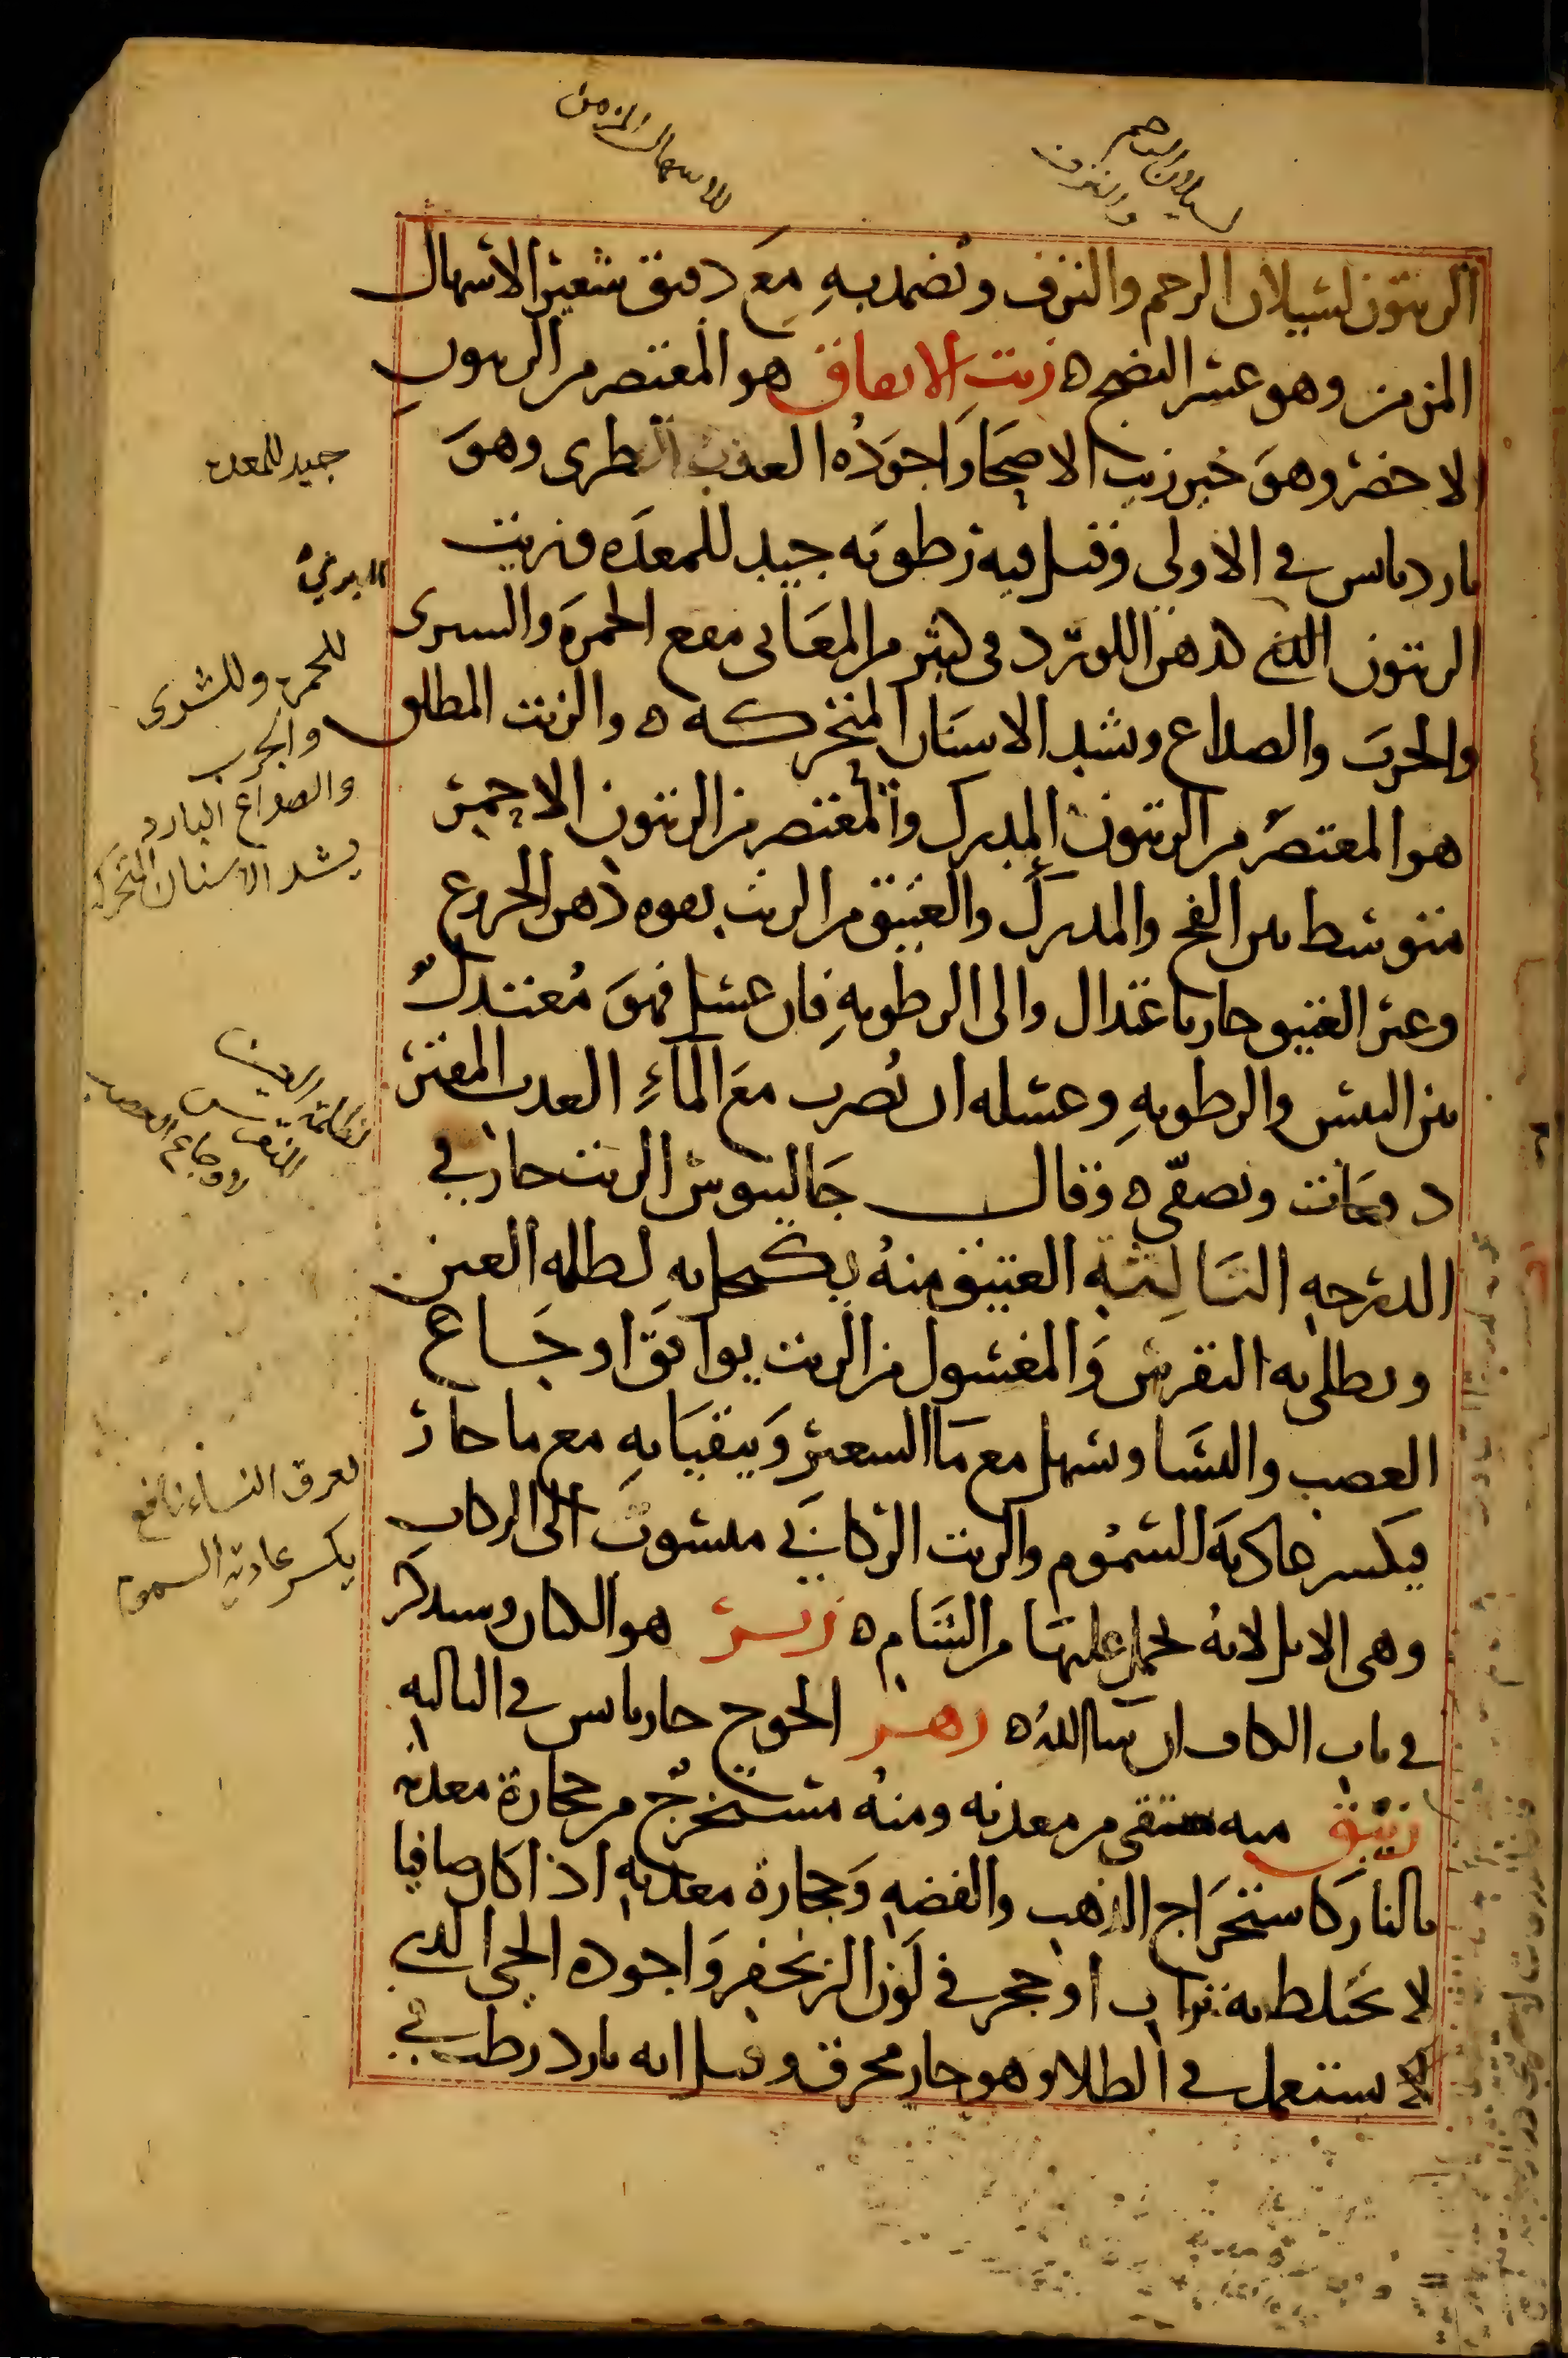 لسيلان الرحم
والنزف
للاسهال المزمن
الزيتون لسيلان الرحم والنزف وتضمد به مع دقيق شعير الاسهال
المزمن وهو عسر النضج ه زيت الانفاق هو المعتصر من الزيتون
الاخضر وهو خير زيت الاصحا واجوده العذب الطرى وهو
بارد يابس في الاولى وقيل فيه رطوبه جيد للمعده وزيت
الزيتون البري كدهن الورد في كثير من المعانى ينفع الحمره والشرى
والجرب والصداع ويشد الاسنان المتحركه ه والزيت المطلق
هو المعتصر من الزيتون المدرك والمعتصر من الزيتون الاحمر
متوسط بين الفج والمدرك والعتيق من الزيت بقوه دهن الخروع
وغير العتيق حار باعتدال والى الرطوبه فان غسل فهو معتدل
بين اليبس والرطوبه وغسله ان يضرب مع المآء العذب المفتر
دفعات ويصفى ه وقال جالينوس الزيت حار في
الدرجه الثالثه العتيق منه يكتحل به لظلمه العين
ويطلى به النقرس والمغسول من الزيت يوافق اوجاع
العصب والنسا ويسهل مع ما الشعير ويتقيا به مع ما حار
فيكسر عاديه السموم والزيت الركابي منسوب الى الركاب
وهي الابل لانه يحمل عليها من الشام ه زير هو الكتان وسيذكر
في باب الكاف ان شا الله ه زهر الخوخ حار يابس في الثالثه
زيبق منه مستقى من معدنه ومنه مستخرج من حجارة معدنه
بالنار كاستخراج الذهب والفضه وحجارة معدنه اذا كان صافيا
لا يختلط به تراب او حجر في لون الزنجفر واجوده الحي الذي
لا يستعمل في الطلا وهو حار محرق وقيل انه بارد رطب في
جيد للمعده
البري
للحمره وللشرى
والجرب
والصداع البارد
يشد الاسنان المتحركه
لظلمة العين
النقرس
لاوجاع العصب
لعرق النساء نافع
يكسر عادية السموم